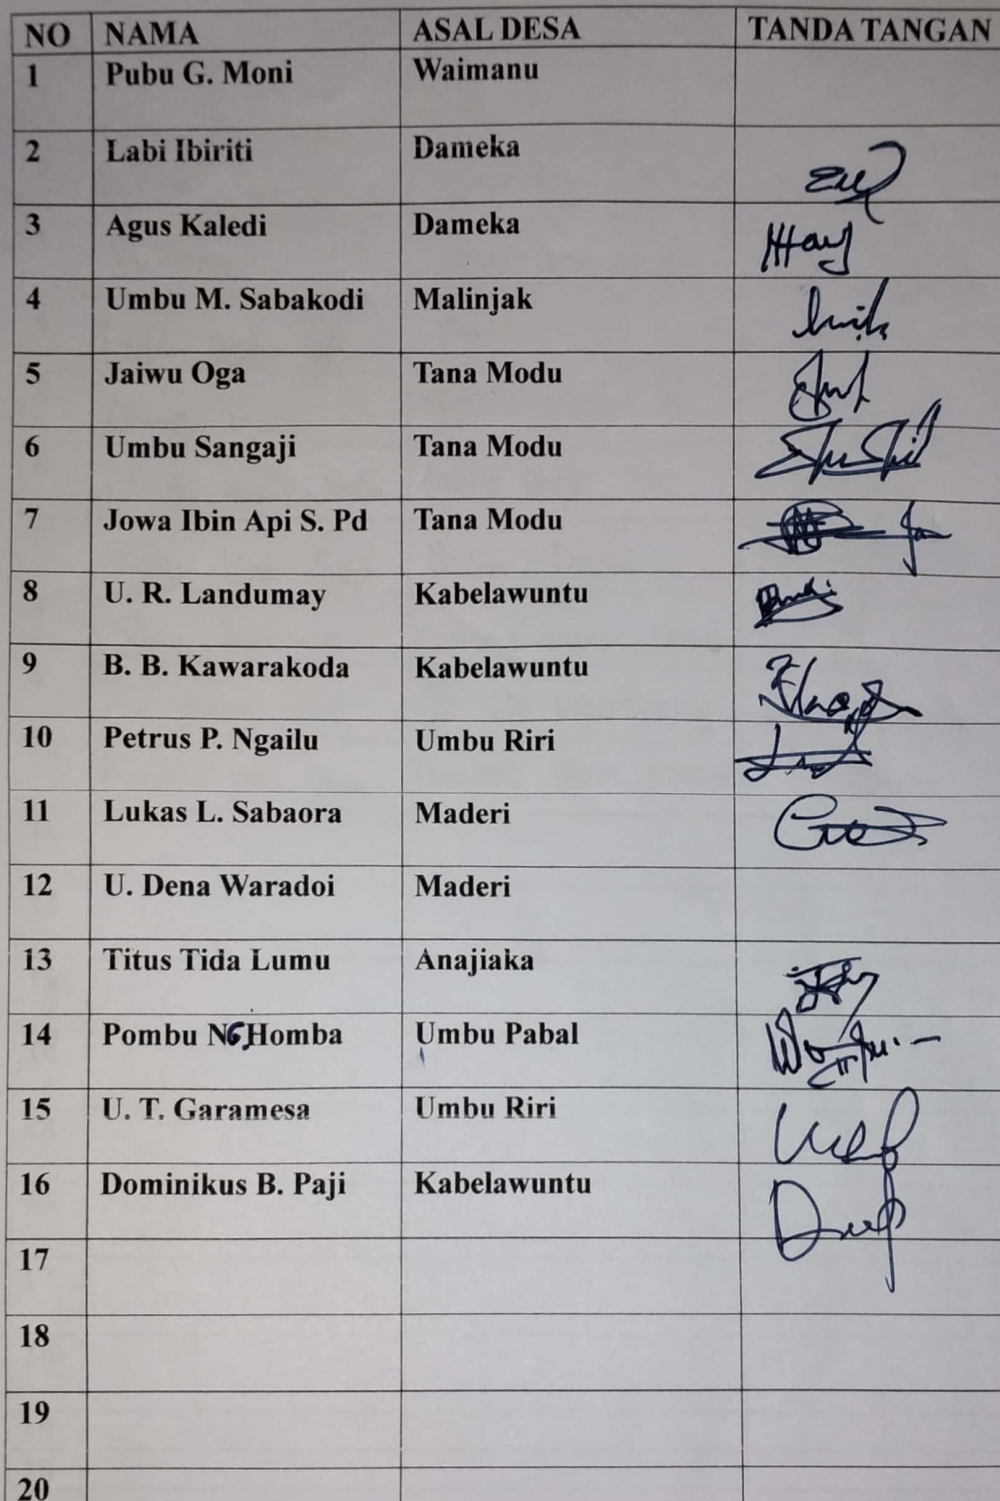 NO NAMA ASAL DESA TANDA TANGAN
1 Pubu G. Moni Waimanu
2 Labi Ibiriti Dameka
3 Agus Kaledi Dameka
4 Umbu M. Sabakodi Malinjak
5 Jaiwu Oga Tana Modu
6 Umbu Sangaji Tana Modu
7 Jowa Ibin Api S. Pd Tana Modu
8 U. R. Landumay Kabelawuntu
9 B. B. Kawarakoda Kabelawuntu
10 Petrus P. Ngailu Umbu Riri
11 Lukas L. Sabaora Maderi
12 U. Dena Waradoi Maderi
13 Titus Tida Lumu Anajiaka
14 Pombu NG Homba Umbu Pabal
15 U. T. Garamesa Umbu Riri
16 Dominikus B. Paji Kabelawuntu
17
18
19
20